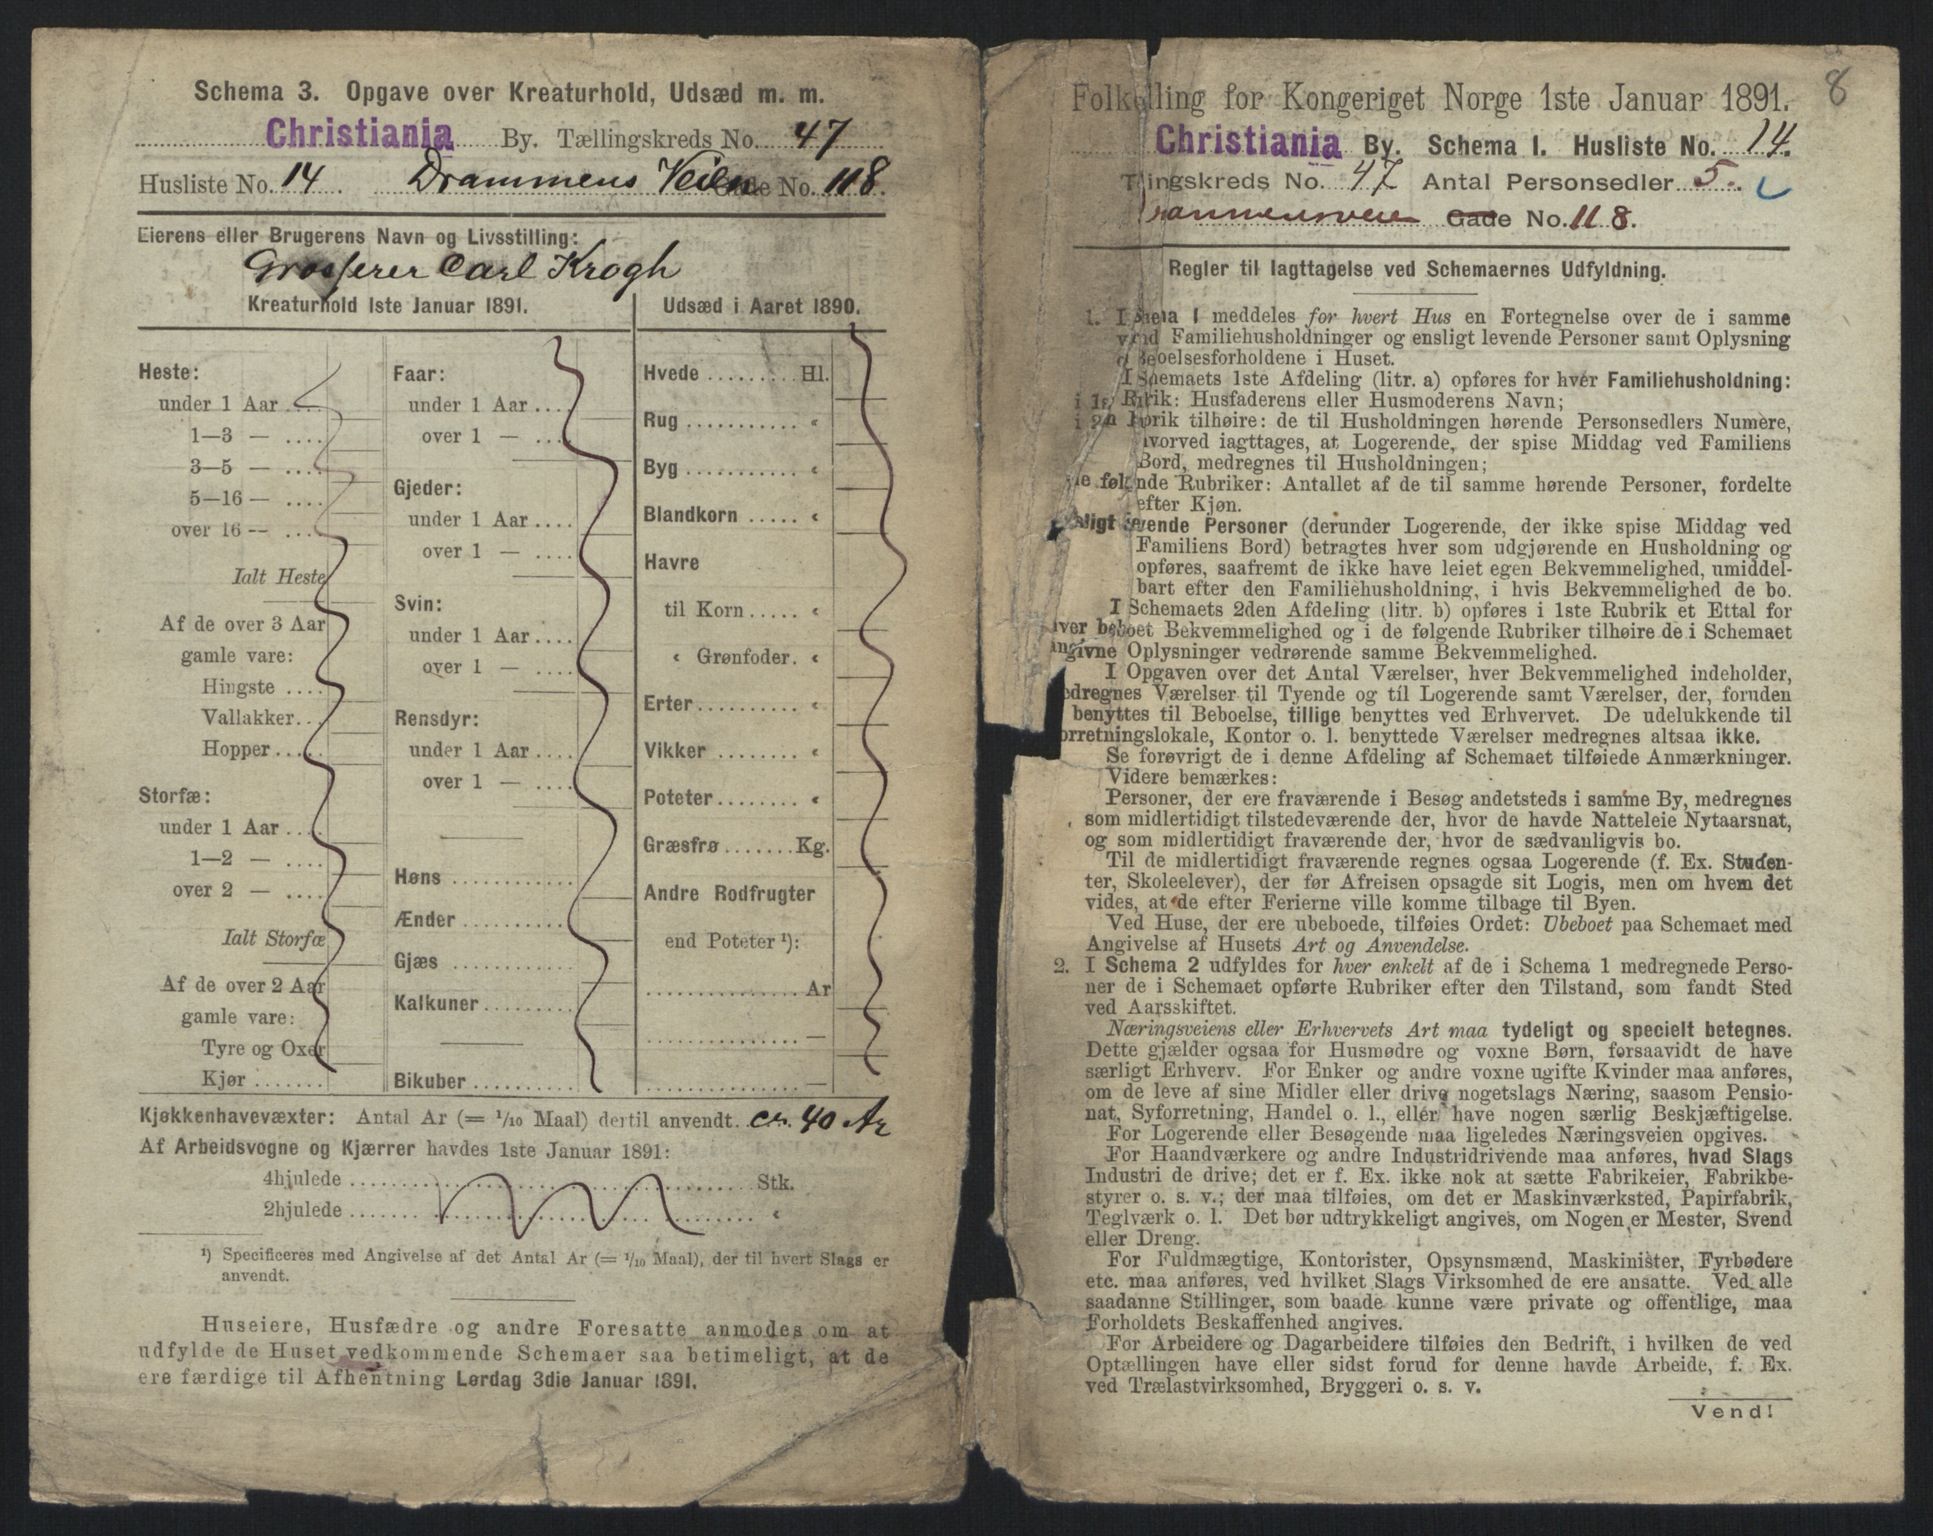 Schema 3. Opgave over Kreaturhold, Udsæd m. m.
Christiania By. Tællingskreds No. 47
Husliste No. 14 Drammens Veien Gade No. 118
Eierens eller Brugerens Navn og Livsstilling:
Grosserer Carl Krogh
Kreaturhold 1ste Januar 1891.
Heste:
under 1 Aar ....
1—3 — ....
3—5 — ....
5—16 — ....
over 16 — ....
Ialt Heste
Af de over 3 Aar
gamle vare:
Hingste ....
Vallakker...
Hopper ....
Storfæ:
under 1 Aar ....
1—2 — ....
over 2 — ....
Ialt Storfæ
Af de over 2 Aar
gamle vare:
Tyre og Oxer
Kjør ........
Faar:
under 1 Aar ....
over 1 — ....
Gjeder:
under 1 Aar ....
over 1 — ....
Svin:
under 1 Aar ....
over 1 — ....
Rensdyr:
under 1 Aar ....
over 1 — ....
Høns ..........
Ænder ..........
Gjæs ..........
Kalkuner ........
Bikuber ........
Udsæd i Aaret 1890.
Hvede ......... Hl.
Rug ........... «
Byg ........... «
Blandkorn ..... «
Havre
til Korn ..... «
« Grønfoder. «
Erter ......... «
Vikker ........ «
Poteter ........ «
Græsfrø ....... Kg.
Andre Rodfrugter
end Poteter ¹):
............... Ar
............... —
............... —
Kjøkkenhavevæxter: Antal Ar (= 1/10 Maal) dertil anvendt. ca. 40 Ar
Af Arbeidsvogne og Kjærrer havdes 1ste Januar 1891:
4hjulede ........................ Stk.
2hjulede ........................ «
¹) Specificeres med Angivelse af det Antal Ar (= 1/10 Maal), der til hvert Slags er
anvendt.
Huseiere, Husfædre og andre Foresatte anmodes om at
udfylde de Huset vedkommende Schemaer saa betimeligt, at de
ere færdige til Afhentning Lørdag 3die Januar 1891.
8
Folketælling for Kongeriget Norge 1ste Januar 1891.
Christiania By. Schema I. Husliste No. 14.
Tællingskreds No. 47 Antal Personsedler 5.
Drammensveien Gade No. 118.
Regler til Iagttagelse ved Schemaernes Udfyldning.
1. I Schema 1 meddeles for hvert Hus en Fortegnelse over de i samme
Familiehusholdninger og ensligt levende Personer samt Oplysning
Beboelsesforholdene i Huset.
I Schemaets 1ste Afdeling (litr. a) opføres for hver Familiehusholdning:
i 1ste Rubrik: Husfaderens eller Husmoderens Navn;
i 2den Rubrik tilhøire: de til Husholdningen hørende Personsedlers Numere,
hvorved iagttages, at Logerende, der spise Middag ved Familiens
Bord, medregnes til Husholdningen;
de følgende Rubriker: Antallet af de til samme hørende Personer, fordelte
efter Kjøn.
Ensligt levende Personer (derunder Logerende, der ikke spise Middag ved
Familiens Bord) betragtes hver som udgjørende en Husholdning og
opføres, saafremt de ikke have leiet egen Bekvemmelighed, umiddel-
bart efter den Familiehusholdning, i hvis Bekvemmelighed de bo.
I Schemaets 2den Afdeling (litr. b) opføres i 1ste Rubrik et Ettal for
hver beboet Bekvemmelighed og i de følgende Rubriker tilhøire de i Schemaet
angivne Oplysninger vedrørende samme Bekvemmelighed.
I Opgaven over det Antal Værelser, hver Bekvemmelighed indeholder,
medregnes Værelser til Tyende og til Logerende samt Værelser, der, foruden
benyttes til Beboelse, tillige benyttes ved Erhvervet. De udelukkende til
Forretningslokale, Kontor o. l. benyttede Værelser medregnes altsaa ikke.
Se forøvrigt de i denne Afdeling af Schemaet tilføiede Anmærkninger.
Videre bemærkes:
Personer, der ere fraværende i Besøg andetsteds i samme By, medregnes
som midlertidigt tilstedeværende der, hvor de havde Natteleie Nytaarsnat,
og som midlertidigt fraværende der, hvor de sædvanligvis bo.
Til de midlertidigt fraværende regnes ogsaa Logerende (f. Ex. Studen-
ter, Skoleelever), der før Afreisen opsagde sit Logis, men om hvem det
vides, at de efter Ferierne ville komme tilbage til Byen.
Ved Huse, der ere ubeboede, tilføies Ordet: Ubeboet paa Schemaet med
Angivelse af Husets Art og Anvendelse.
2. I Schema 2 udfyldes for hver enkelt af de i Schema 1 medregnede Perso-
ner de i Schemaet opførte Rubriker efter den Tilstand, som fandt Sted
ved Aarsskiftet.
Næringsveiens eller Erhvervets Art maa tydeligt og specielt betegnes.
Dette gjælder ogsaa for Husmødre og voxne Børn, forsaavidt de have
særligt Erhverv. For Enker og andre voxne ugifte Kvinder maa anføres,
om de leve af sine Midler eller drive nogetslags Næring, saasom Pensio-
nat, Syforretning, Handel o. l., eller have nogen særlig Beskjæftigelse.
For Logerende eller Besøgende maa ligeledes Næringsveien opgives.
For Haandværkere og andre Industridrivende maa anføres, hvad Slags
Industri de drive; det er f. Ex. ikke nok at sætte Fabrikeier, Fabrikbe-
styrer o. s. v.; der maa tilføies, om det er Maskinværksted, Papirfabrik,
Teglværk o. l. Det bør udtrykkeligt angives, om Nogen er Mester, Svend
eller Dreng.
For Fuldmægtige, Kontorister, Opsynsmænd, Maskinister, Fyrbødere
etc. maa anføres, ved hvilket Slags Virksomhed de ere ansatte. Ved alle
saadanne Stillinger, som baade kunne være private og offentlige, maa
Forholdets Beskaffenhed angives.
For Arbeidere og Dagarbeidere tilføies den Bedrift, i hvilken de ved
Optællingen have eller sidst forud for denne havde Arbeide, f. Ex.
ved Trælastvirksomhed, Bryggeri o. s. v.
Vend!